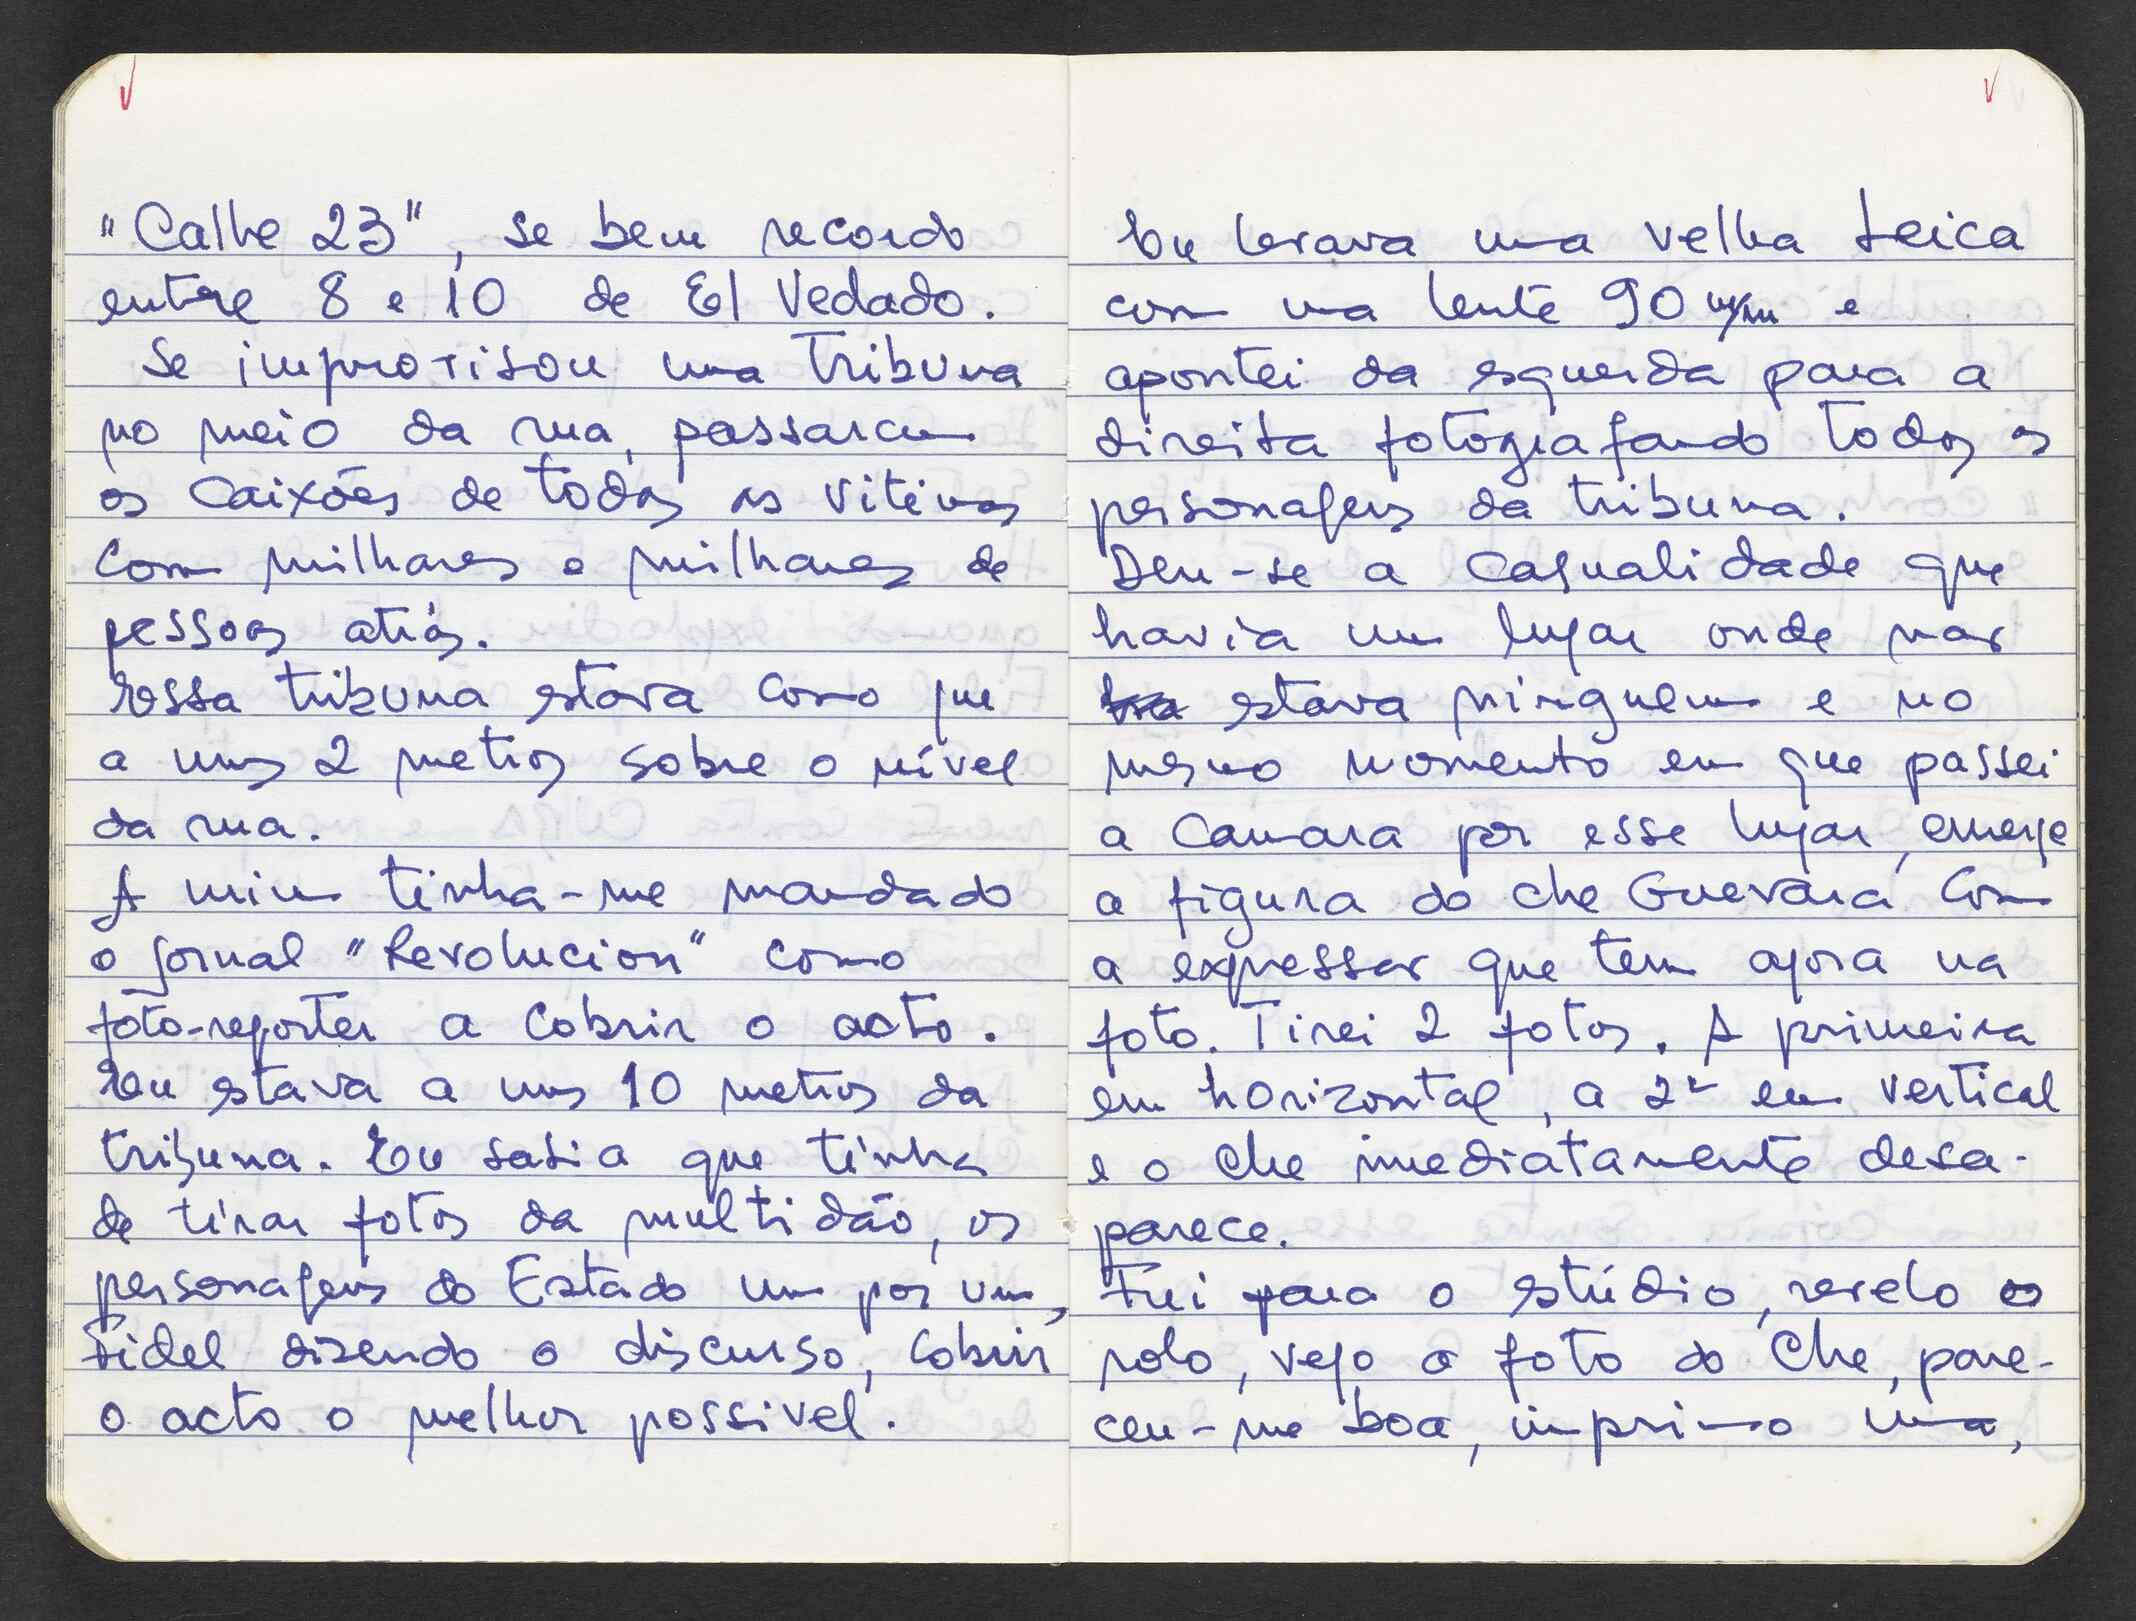 "Calhe 23", se bem recordo
entre 8 e 10 de El Vedado.
Se improvisou uma tribuna
no meio da rua, passaram
os Caixões de todas as vitimas
com milhares e milhares de
pessoas atrás.
Essa tribuna estava como que
a uns 2 metros sobre o nível
da rua.
A mim tinha-me mandado
o jornal "Revolucion" como
foto-reporter a cobrir o acto.
Eu estava a uns 10 metros da
tribuna. Eu sabia que tinha
de tirar fotos da multidão, os
personagens do Estado um por um,
Fidel dizendo o discurso, cobrir
o acto o melhor possivel.
Eu levava uma velha Leica
com uma lente 90 m/m e
apontei da esquerda para a
direita fotografando todos os
personagens da tribuna.
Deu-se a casualidade que
havia um lugar onde nao
estava ninguem e no
mesmo momento em que passei
a Camara por esse lugar, emerge
a figura do Che Guevara com
a expressao que tem agora na
foto. Tirei 2 fotos. A primeira
em horizontal, a 2ª em vertical
e o Che imediatamente desa-
parece.
Fui para o estúdio, revelo o
rolo, vejo a foto do Che, pare-
ceu-me boa, imprimo uma,